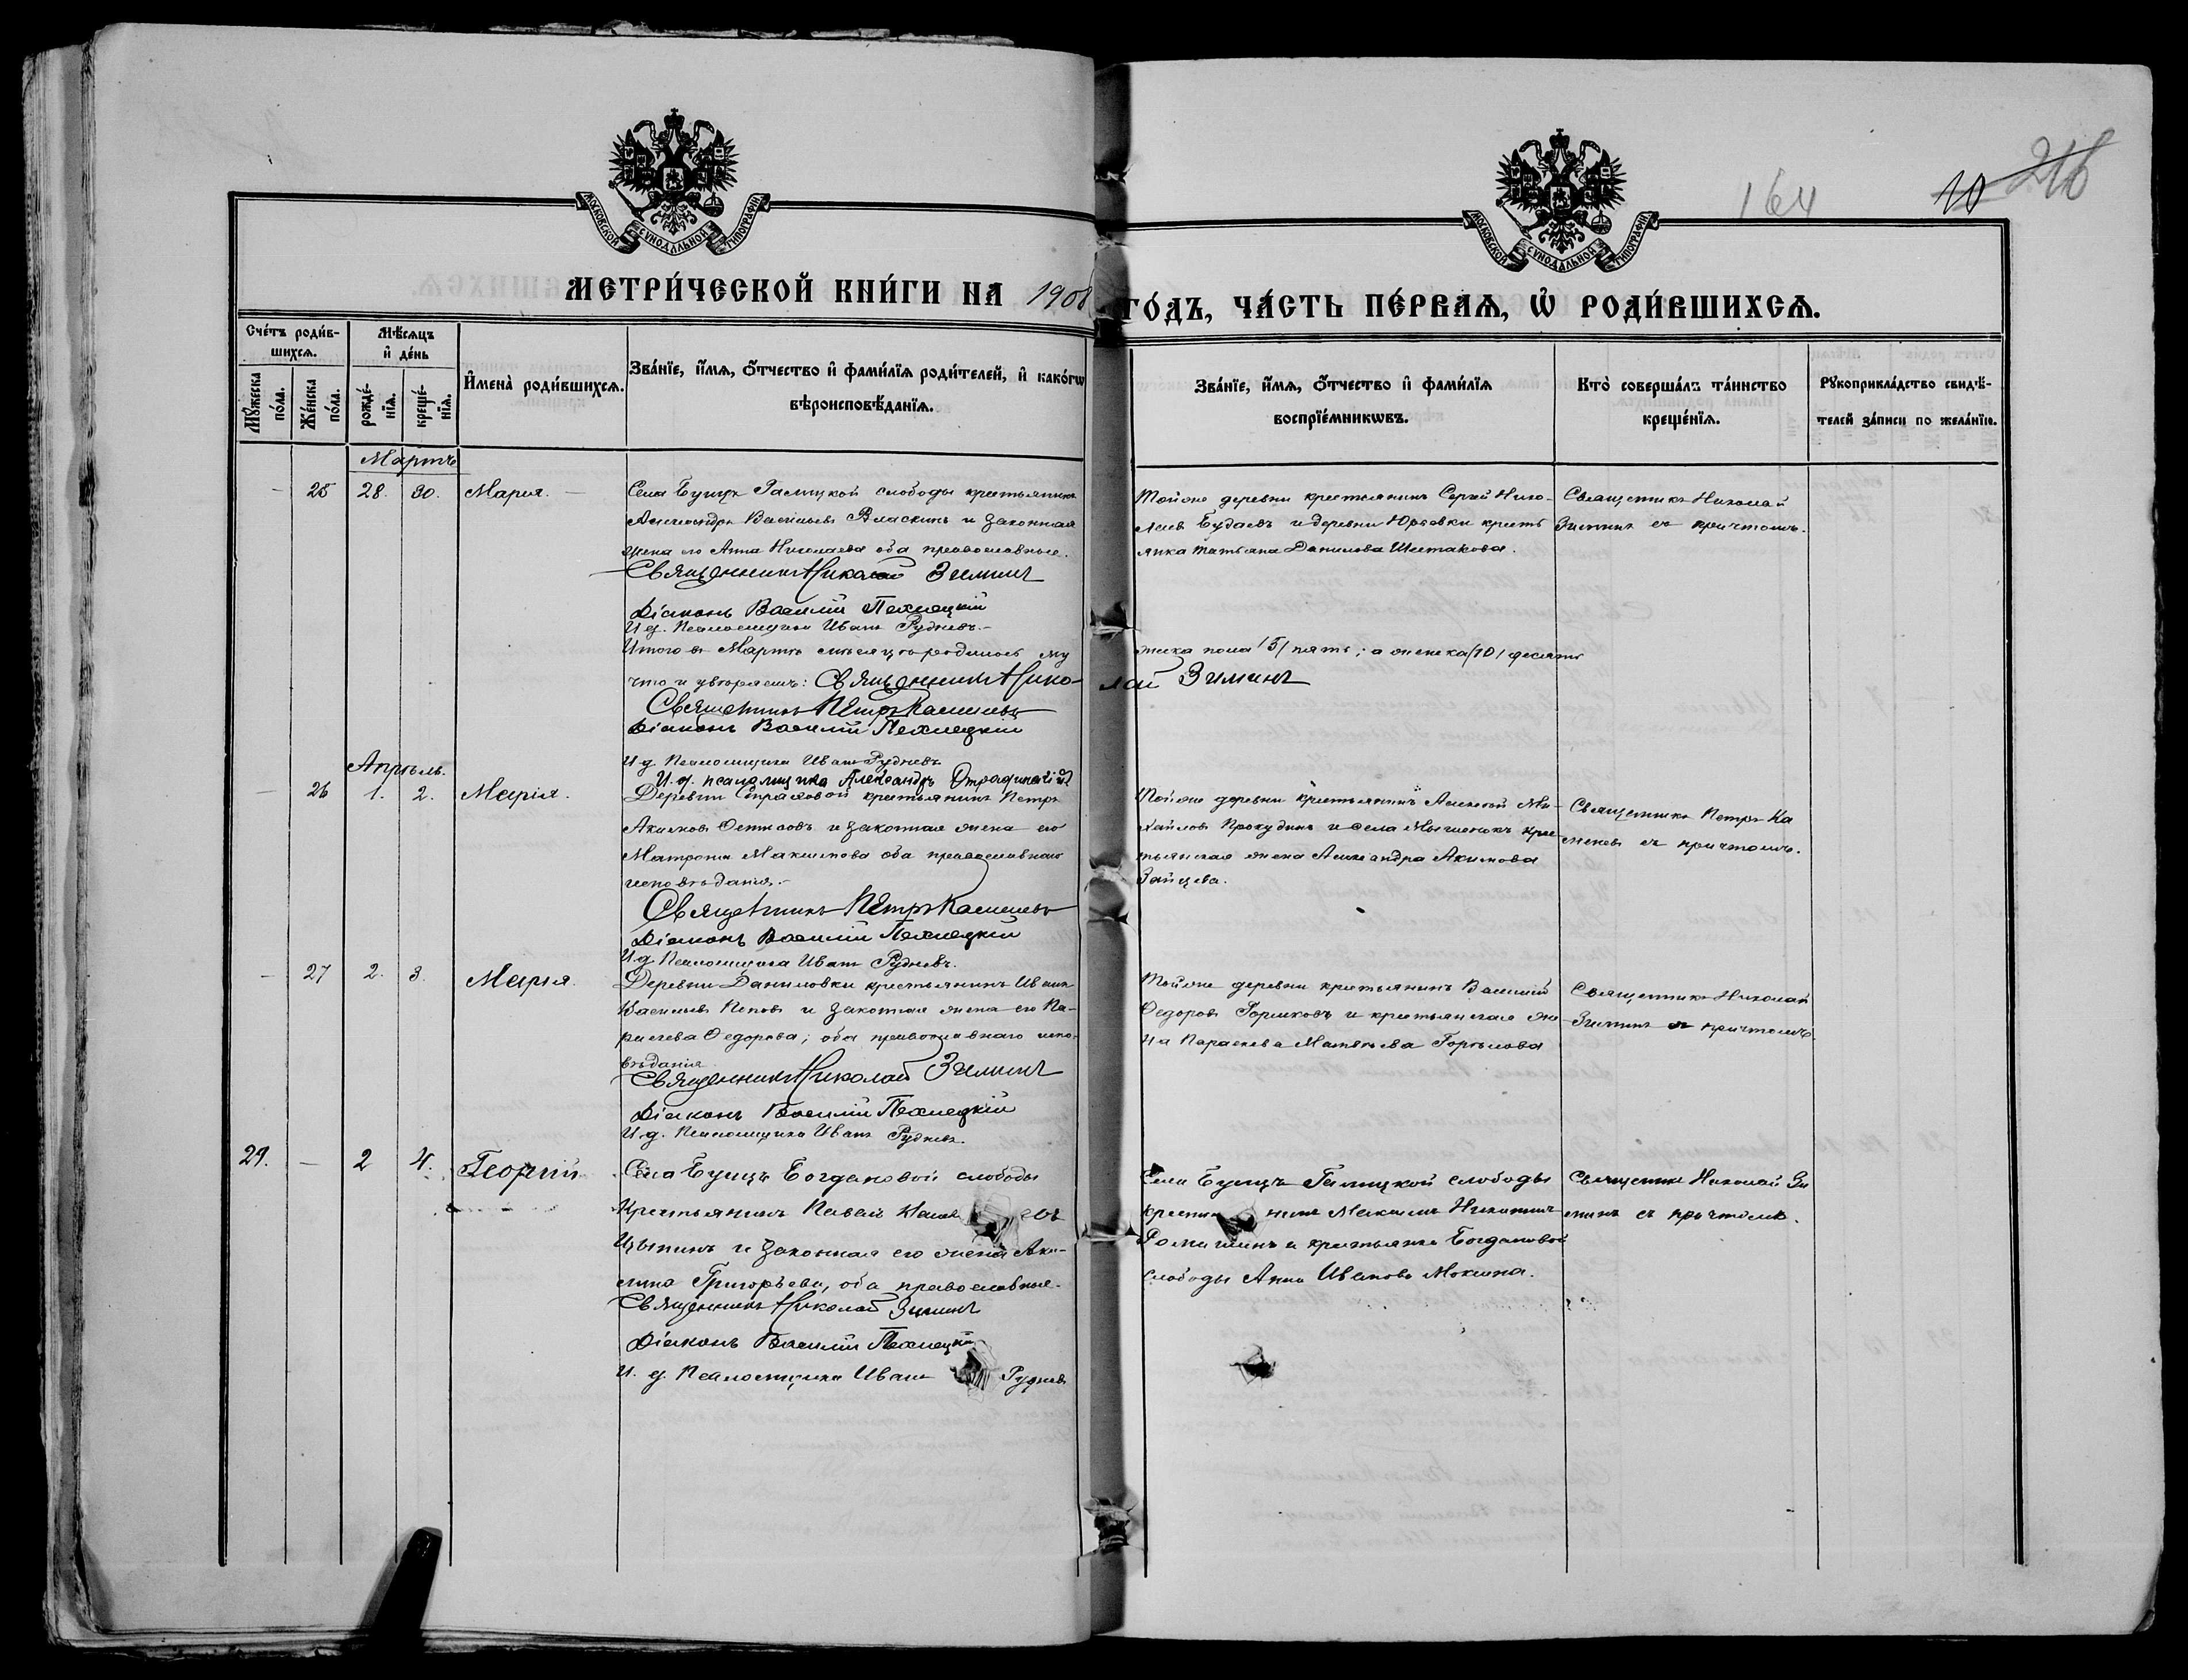 МОСКОВСКОЙ СУНОДАЛЬНОЙ ТИПОГРАФІИ
МОСКОВСКОЙ СУНОДАЛЬНОЙ ТИПОГРАФІИ
164
10
216
МЕТРИ́ЧЕСКОЙ КНИ́ГИ НА 1908
ГО́ДЪ, ЧА́СТЬ ПЕ́РВАЯ, Ѡ РОДИ́ВШИХСЯ.
Сче́тъ роди́в-
шихся.
Мꙋ́жеска по́ла.
Же́нска по́ла.
Мѣ́сяцъ
и де́нь
рожде́-нїя.
креще́-нїя.
Имена̀ роди́вшихся.
Зва́нїе, и́мя, о́тчество и фами́лїя роди́телей, и како́гѡ
вѣроисповѣ́данїя.
Зва́нїе, и́мя, о́тчество и фами́лїя
воспрїе́мникѡвъ.
Кто̀ соверша́лъ та́инство
креще́нїя.
Рꙋкоприкла́дство свидѣ́-
телей за́писи по жела́нїю.
Мартъ
- 25 28. 30. Мария. -
Села Бущъ Галицкой слободы крестьянинъ
Александръ Васильевъ Власкинъ и законная
жена его Анна Николаева оба православные.
Священникъ Николай Зиминъ
Діаконъ Василій
И. д. Псаломщика Иванъ Рудневъ.-
Итого въ Мартѣ мѣсяцѣ родилось му
что и увѣряемъ: Священникъ Нико-
Священникъ Петръ Каменевъ
Діаконъ Василій
И. д. Псаломщика Иванъ Рудневъ
И. д. псаломщика Александръ
Тойже деревни крестьянинъ Сергѣй Нико-
лаевъ Будаевъ и деревни Юрьевки кресть
янка Татьяна Данилова
Священникъ Николай
Зиминъ съ причтомъ.
жеска пола /5/ пять; а женска /10/ десять
лай Зиминъ
Апрѣль.
- 26 1. 2. Марія.
Деревни крестьянинъ Петръ
Акимовъ и законная жена его
Матрона Максимова оба православнаго
исповѣданія.-
Священникъ Петръ Каменевъ
Діаконъ Василій
И. д. Псаломщика Иванъ Рудневъ.
Тойже деревни крестьянинъ Алексѣй Ми-
хайловъ Прокудинъ и села крес-
тьянская жена Александра Акимова
Зайцева.
Священникъ Петръ Ка
меневъ съ причтомъ.
- 27 2. 3. Марія.
Деревни Даниловки крестьянинъ Иванъ
Васильевъ Поповъ и законная жена его Па-
раскева Ѳедорова; оба православнаго испо-
вѣданія
Священникъ Николай Зиминъ
Діаконъ Василій
И. д. Псаломщика Иванъ Рудневъ.
Тойже деревни крестьянинъ Василій
Ѳедоровъ Горшковъ и крестьянская же
на Параскева Матвѣева
Священникъ Николай
Зиминъ съ причтомъ.
29. - 2 4. Георгій
Села Бущъ Богдановой слободы
Крестьянинъ Павелъ
и законная его жена Аки-
лина Григорьева, оба православные.
Священникъ Николай Зиминъ
Діаконъ Василій
И. д. Псаломщика Иванъ Рудневъ
Села Бущъ Галицкой слободы
Максимъ Никитинъ
и крестьянка Богдановой
слободы Анна Иванова Мокшина.
Священникъ Николай Зи
минъ съ причтомъ.